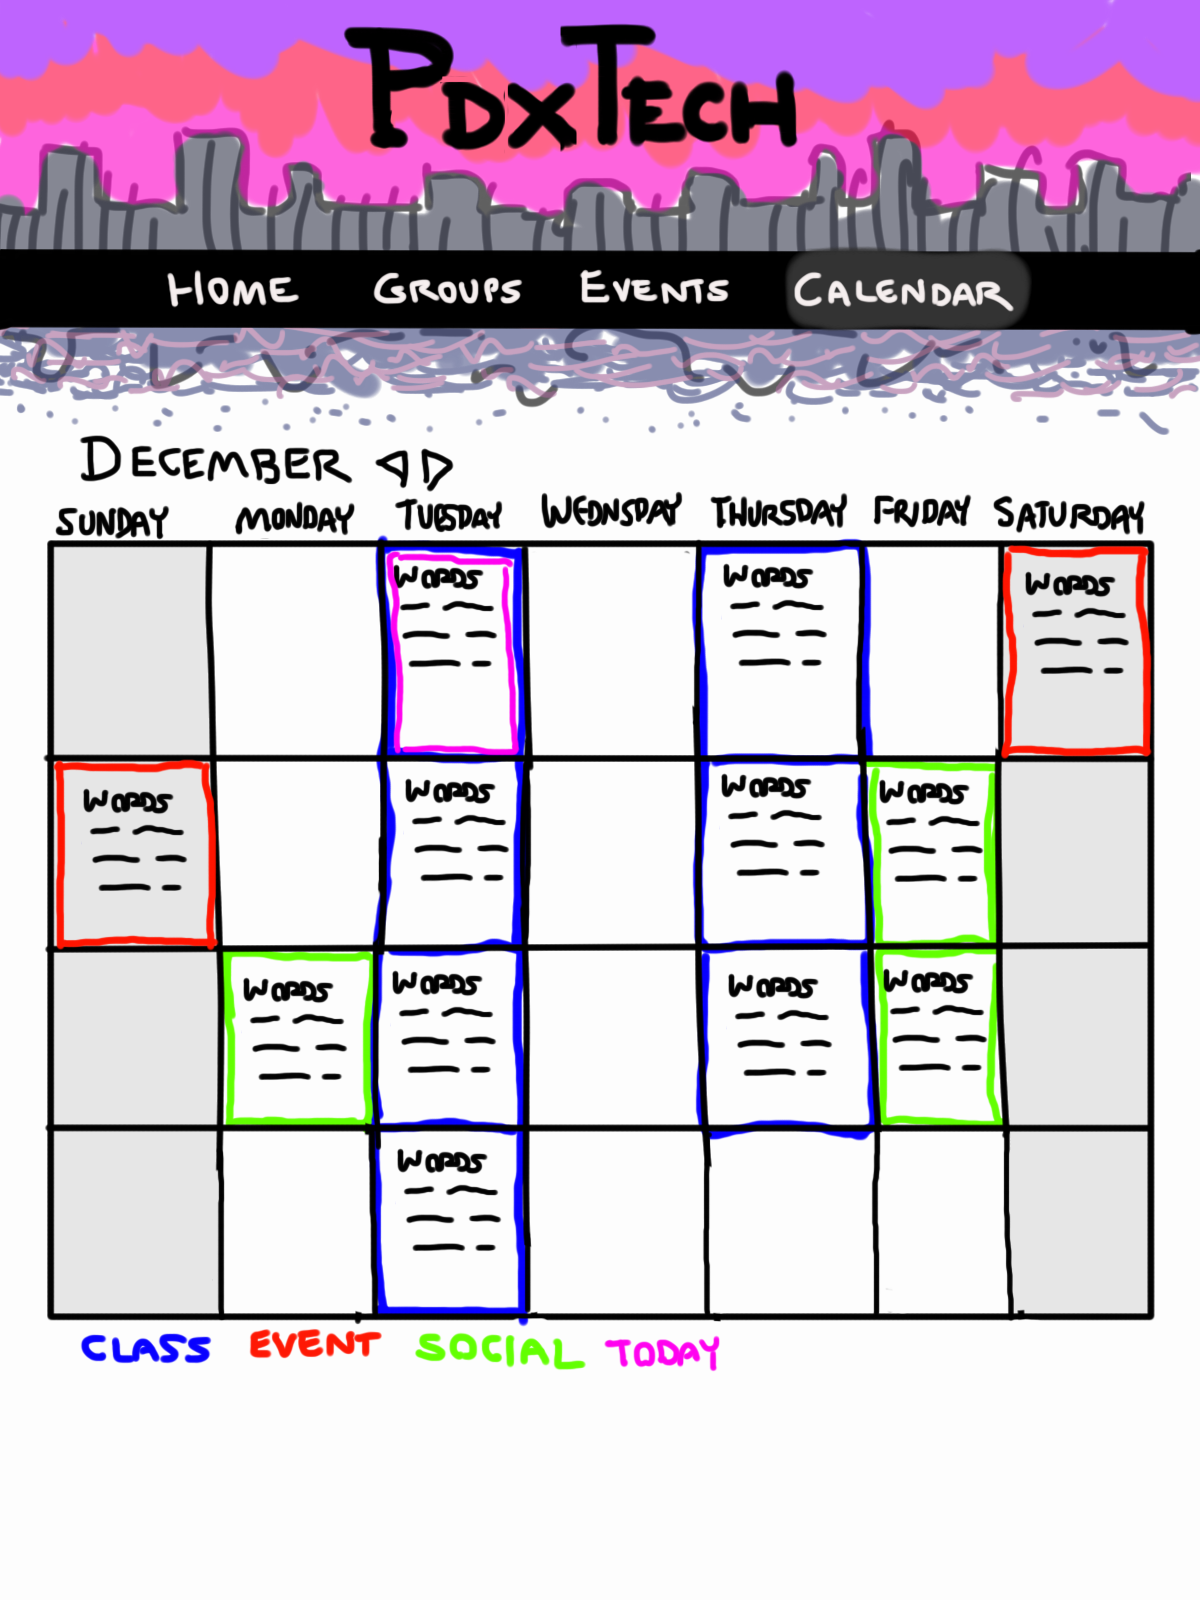 PDXTECH
HOME GROUPS EVENTS CALENDAR
DECEMBER
SUNDAY MONDAY TUESDAY WEDNSDAY THURSDAY FRIDAY SATURDAY
WORDS WORDS WORDS
WORDS WORDS WORDS WORDS
WORDS WORDS WORDS WORDS
WORDS
CLASS EVENT SOCIAL TODAY